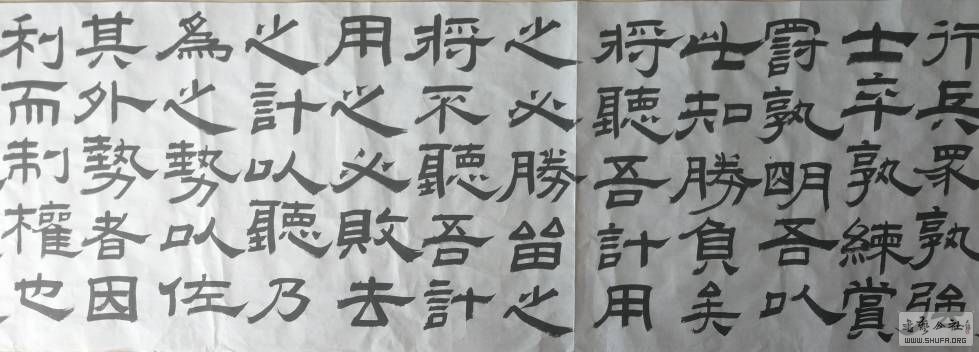 行兵眾孰强
士卒孰練賞
罰孰明吾以
此知勝負矣
将聽吾計用
之必勝留之
将不聽吾計
用之必敗去
之計以聽乃
為之勢以佐
其外勢者因
利而制權也
WWW.SHUFA.ORG